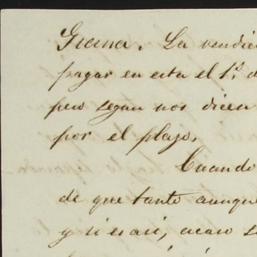 Grama. La vendie
pagar en esta el 1º. d
pero segun nos dicen
por el plazo.
Cuando
de que tanto aunque
y si es asi, acaso se